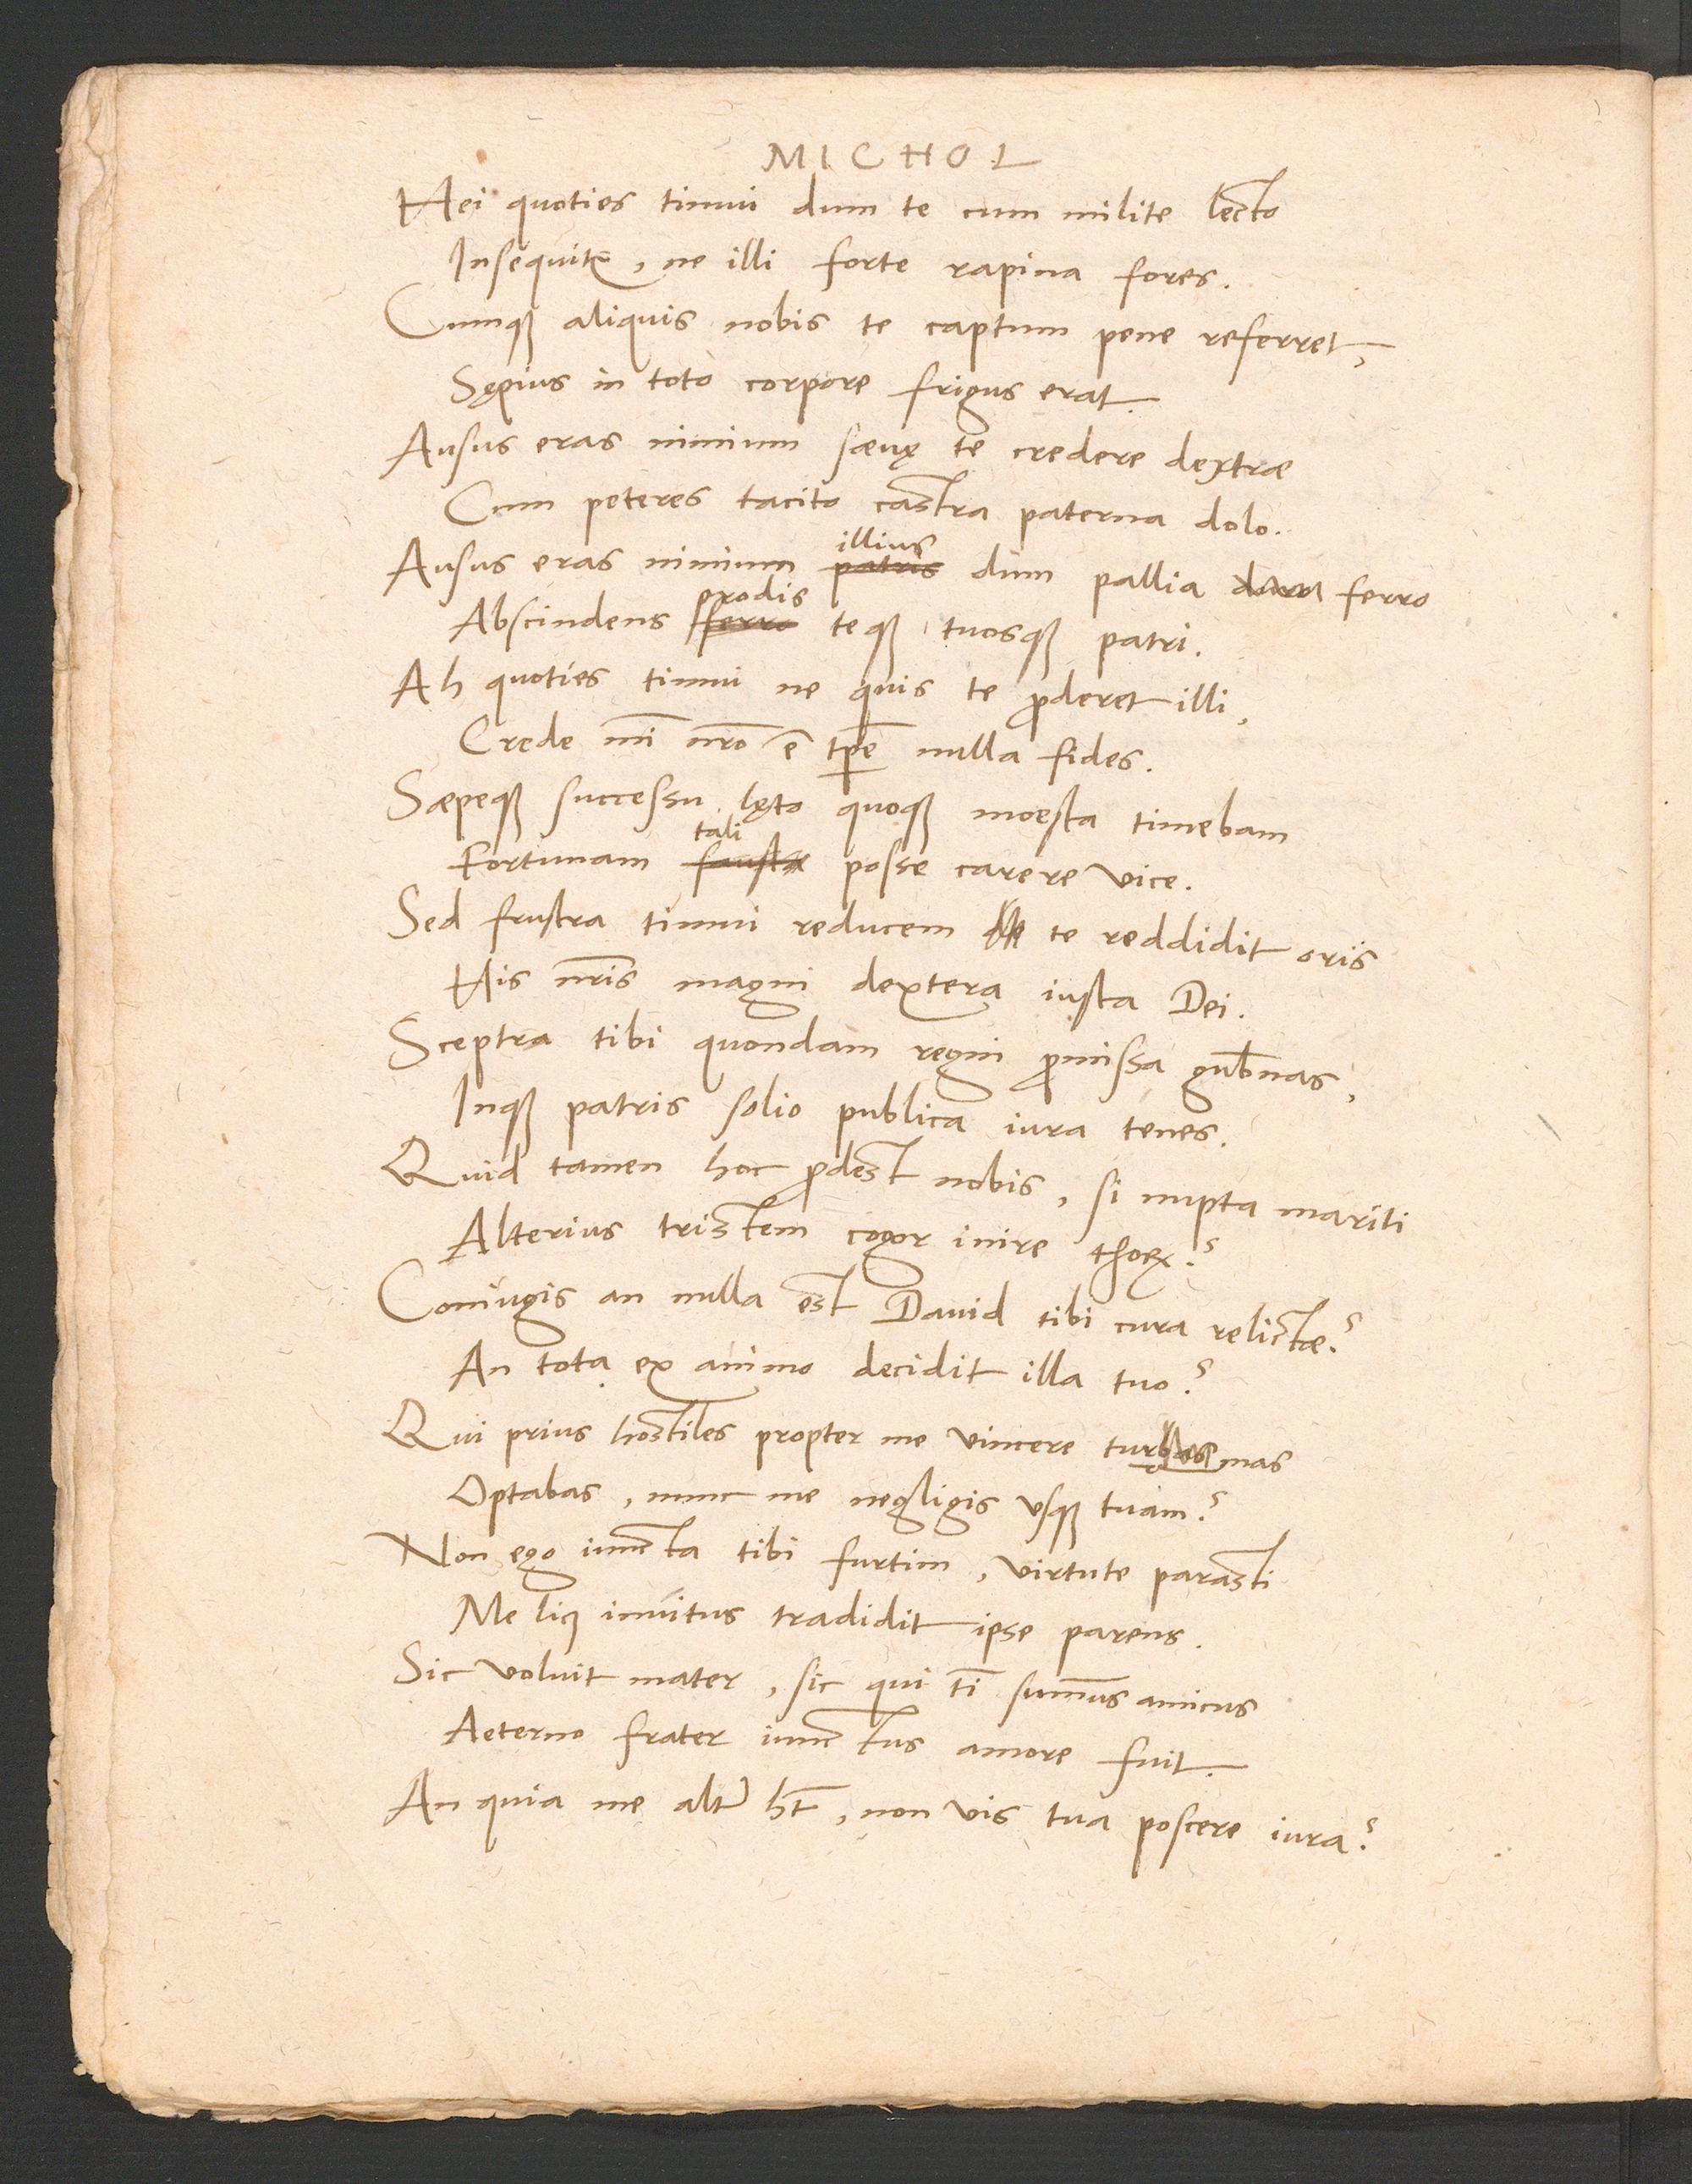 MICHOL
Hei quoties timui dum te cum milite lecto
Insequitr, ne illi forte rapina fores.
Cumqꝫ aliquis nobis te captum pene referret,
Sępius in toto corpore frigus erat.
Ausus eras nimium sæuę te credere dextræ
Cum peteres tacito castra paterna dolo.
illius
Ausus eras nimium patris dum pallia ferro
prodis
Abscindens ferro teqꝫ tuosqꝫ patri.
Ah quoties timui ne quis te ꝓderet illi,
Crede mi nr̄o ē tp̄e nulla fides.
Sæpeqꝫ successu lęto quoqꝫ moesta timebam
tali
Fortunam fausta posse carere vice.
Sed frustra timui reducem te reddidit oriis
His nr̄is magni dextera iusta Dei.
Sceptra tibi quondam regni ꝓmissa gub̄nas,
Inqꝫ patris solio publica iura tenes.
Quid tamen hoc ꝓdest nobis, si nupta mariti
Alterius tristem cogor inire thorū?
Coniugis an nulla est Dauid tibi cura relictæ?
An tota ex animo decidit illa tuo?
Qui prius hostiles propter me vincere turmas
Optabas, nunc me negligis vsqꝫ tuam?
Non ego iuncta tibi furtim, virtute parasti
Me licꝫ inuitus tradidit ipse parens.
Sic voluit mater, sic qui tī sum̄us amicus
Aeterno frater iunctus amore fuit.
An quia me altr̄ ht̄, non vis tua poscere iura?